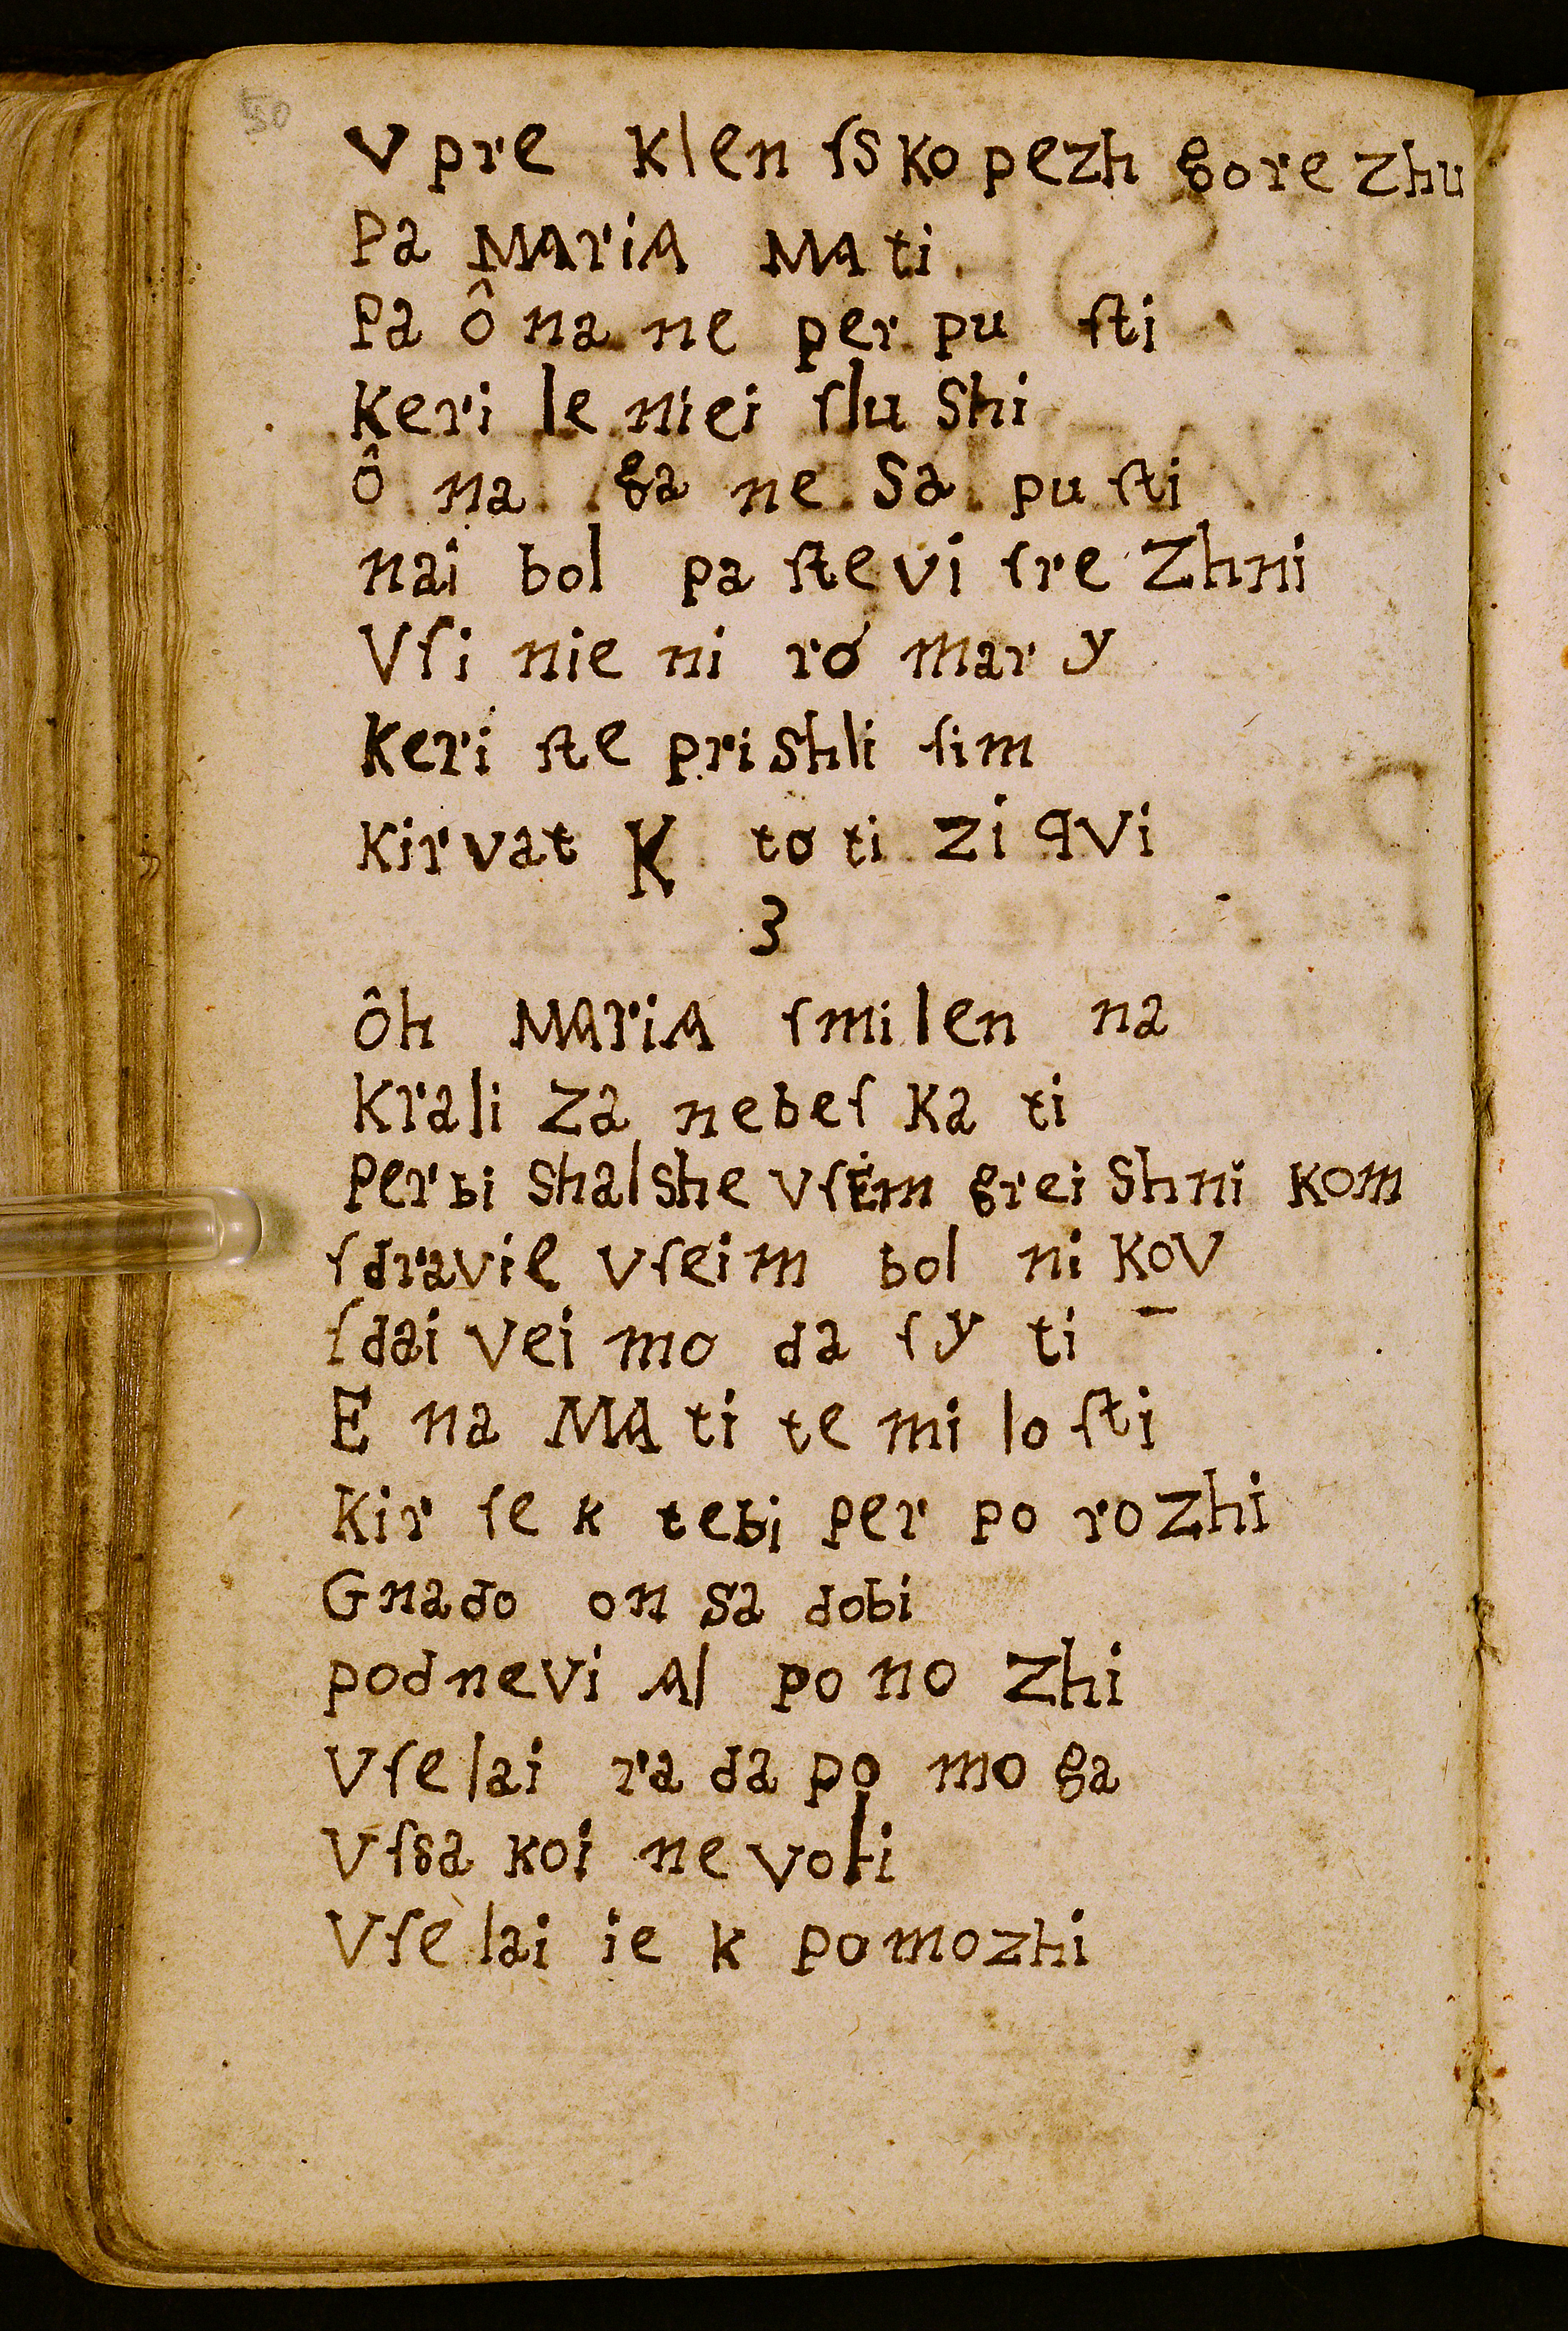 50
V pre klen ſs ko pezh gore zhu
Pa MAriA MA ti
Pa ô na ne per pu ſti
Keri le niei ſlu Shi
ô na ga ne Sa pu ſti
nai bol pa ſte vi ſre Zhni
Vſi nie ni ró mar y
Keri ſte pri Shli ſim
Kirvat K to ti Zi qVi
3
ôh MAriA ſmi len na
Krali Za nebeſ Ka ti
Per bi Shal She VſEm grei Shni Kom
ſdravil Vſeim bol ni KoV
ſdai Vei mo da ſy ti
E na MA ti te mi lo ſti
Kir ſe k tebi Per po ro Zhi
Gnado on Sa dobi
podnevi Al po no Zhi
Vſe lai ra da po mo ga
Vſsa koi ne voli
Vſe lai ie k pomozhi